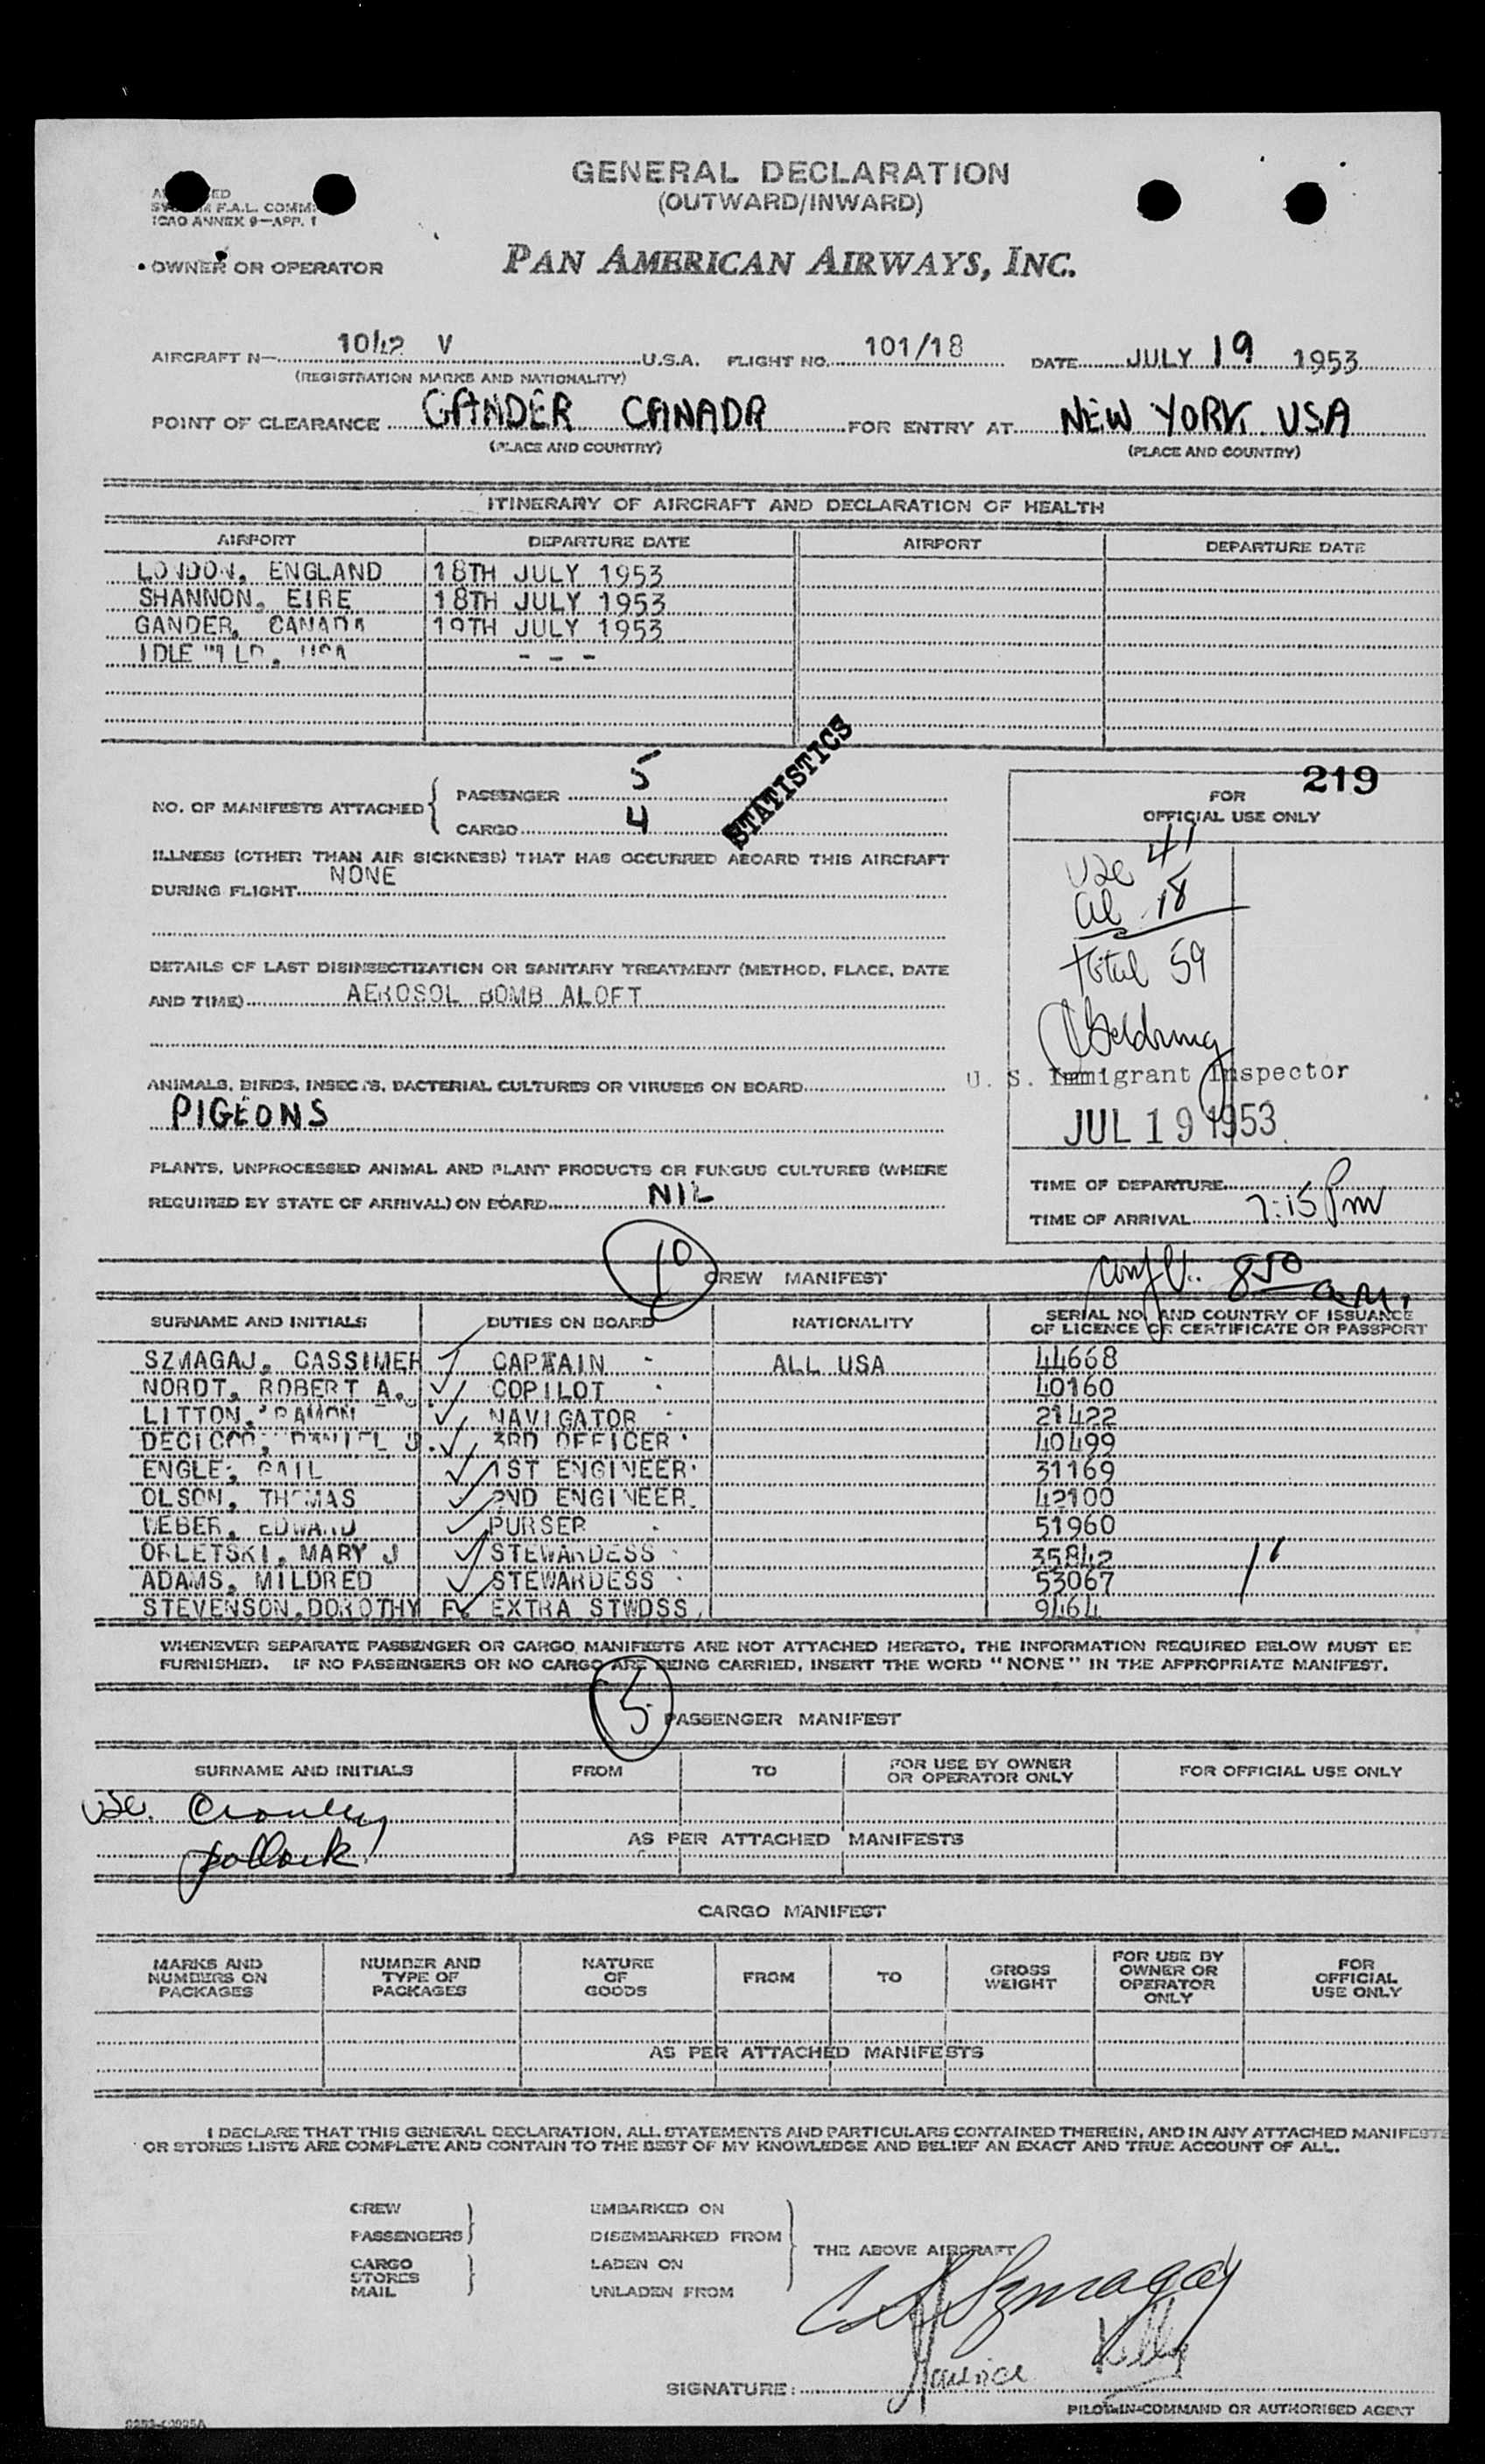 GENERAL DECLARATION
(OUTWARD/INWARD)
F.A.L. COMM.
ICAO ANNEX 9—APP. 1
OWNER OR OPERATOR
PAN AMERICAN AIRWAYS, INC.
AIRCRAFT N— 1042 V U.S.A. FLIGHT NO. 101/18 DATE JULY 19 1953
(REGISTRATION MARKS AND NATIONALITY)
POINT OF CLEARANCE GANDER CANADA FOR ENTRY AT NEW YORK. USA
(PLACE AND COUNTRY) (PLACE AND COUNTRY)
ITINERARY OF AIRCRAFT AND DECLARATION OF HEALTH
AIRPORT DEPARTURE DATE AIRPORT DEPARTURE DATE
LONDON, ENGLAND 18TH JULY 1953
SHANNON, EIRE 18TH JULY 1953
GANDER, CANADA 19TH JULY 1953
- - -
STATISTICS
NO. OF MANIFESTS ATTACHED { PASSENGER 5
CARGO 4
ILLNESS (OTHER THAN AIR SICKNESS) THAT HAS OCCURRED ABOARD THIS AIRCRAFT
DURING FLIGHT NONE
DETAILS OF LAST DISINSECTIZATION OR SANITARY TREATMENT (METHOD, PLACE, DATE
AND TIME) AEROSOL BOMB ALOFT
ANIMALS, BIRDS, INSECTS, BACTERIAL CULTURES OR VIRUSES ON BOARD
PIGEONS
PLANTS, UNPROCESSED ANIMAL AND PLANT PRODUCTS OR FUNGUS CULTURES (WHERE
REQUIRED BY STATE OF ARRIVAL) ON BOARD NIL
219
FOR
OFFICIAL USE ONLY
USC 41
al 18
total 59
U. S. Immigrant Inspector
JUL 19 1953
TIME OF DEPARTURE
TIME OF ARRIVAL 7:15 Pm
850 a.m.
10
CREW MANIFEST
SURNAME AND INITIALS DUTIES ON BOARD NATIONALITY SERIAL NO. AND COUNTRY OF ISSUANCE
OF LICENCE OR CERTIFICATE OR PASSPORT
SZMAGAJ, CASSIMER CAPTAIN ALL USA 44668
NORDT, ROBERT A. COPILOT 40160
LITTON, RAMON NAVIGATOR 21422
DECICCO, DANIEL J. 3RD OFFICER 40499
ENGLE, GAIL 1ST ENGINEER 31169
OLSON, THOMAS 2ND ENGINEER 42100
WEBER, EDWARD PURSER 51960
ORLETSKI, MARY J STEWARDESS 35842
ADAMS, MILDRED STEWARDESS 53067
STEVENSON, DOROTHY F. EXTRA STWDSS 9464
WHENEVER SEPARATE PASSENGER OR CARGO MANIFESTS ARE NOT ATTACHED HERETO, THE INFORMATION REQUIRED BELOW MUST BE
FURNISHED. IF NO PASSENGERS OR NO CARGO ARE BEING CARRIED, INSERT THE WORD "NONE" IN THE APPROPRIATE MANIFEST.
5
PASSENGER MANIFEST
SURNAME AND INITIALS FROM TO FOR USE BY OWNER
OR OPERATOR ONLY FOR OFFICIAL USE ONLY
USC.
pollock
AS PER ATTACHED MANIFESTS
CARGO MANIFEST
MARKS AND
NUMBERS ON
PACKAGES
NUMBER AND
TYPE OF
PACKAGES
NATURE
OF
GOODS
FROM
TO
GROSS
WEIGHT
FOR USE BY
OWNER OR
OPERATOR
ONLY
FOR
OFFICIAL
USE ONLY
AS PER ATTACHED MANIFESTS
I DECLARE THAT THIS GENERAL DECLARATION, ALL STATEMENTS AND PARTICULARS CONTAINED THEREIN, AND IN ANY ATTACHED MANIFESTS
OR STORES LISTS ARE COMPLETE AND CONTAIN TO THE BEST OF MY KNOWLEDGE AND BELIEF AN EXACT AND TRUE ACCOUNT OF ALL.
CREW
PASSENGERS
CARGO
STORES
MAIL
EMBARKED ON
DISEMBARKED FROM
LADEN ON
UNLADEN FROM
THE ABOVE AIRCRAFT
C S Szmagaj
SIGNATURE:
PILOT-IN-COMMAND OR AUTHORISED AGENT